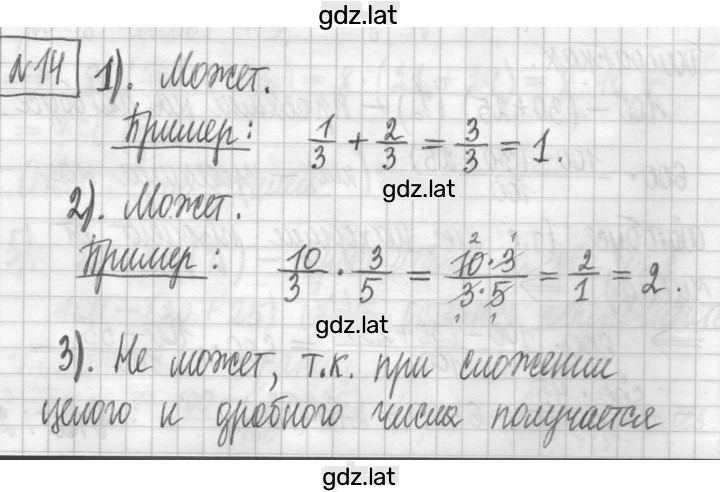 gdz.lat
№14 1). Может.
Пример: 1/3 + 2/3 = 3/3 = 1.
gdz.lat
2). Может.
Пример: 10/3 · 3/5 = 10·3/3·5 = 2/1 = 2.
gdz.lat
3). Не может, т.к. при сложении
целого и дробного числа получается
gdz.lat